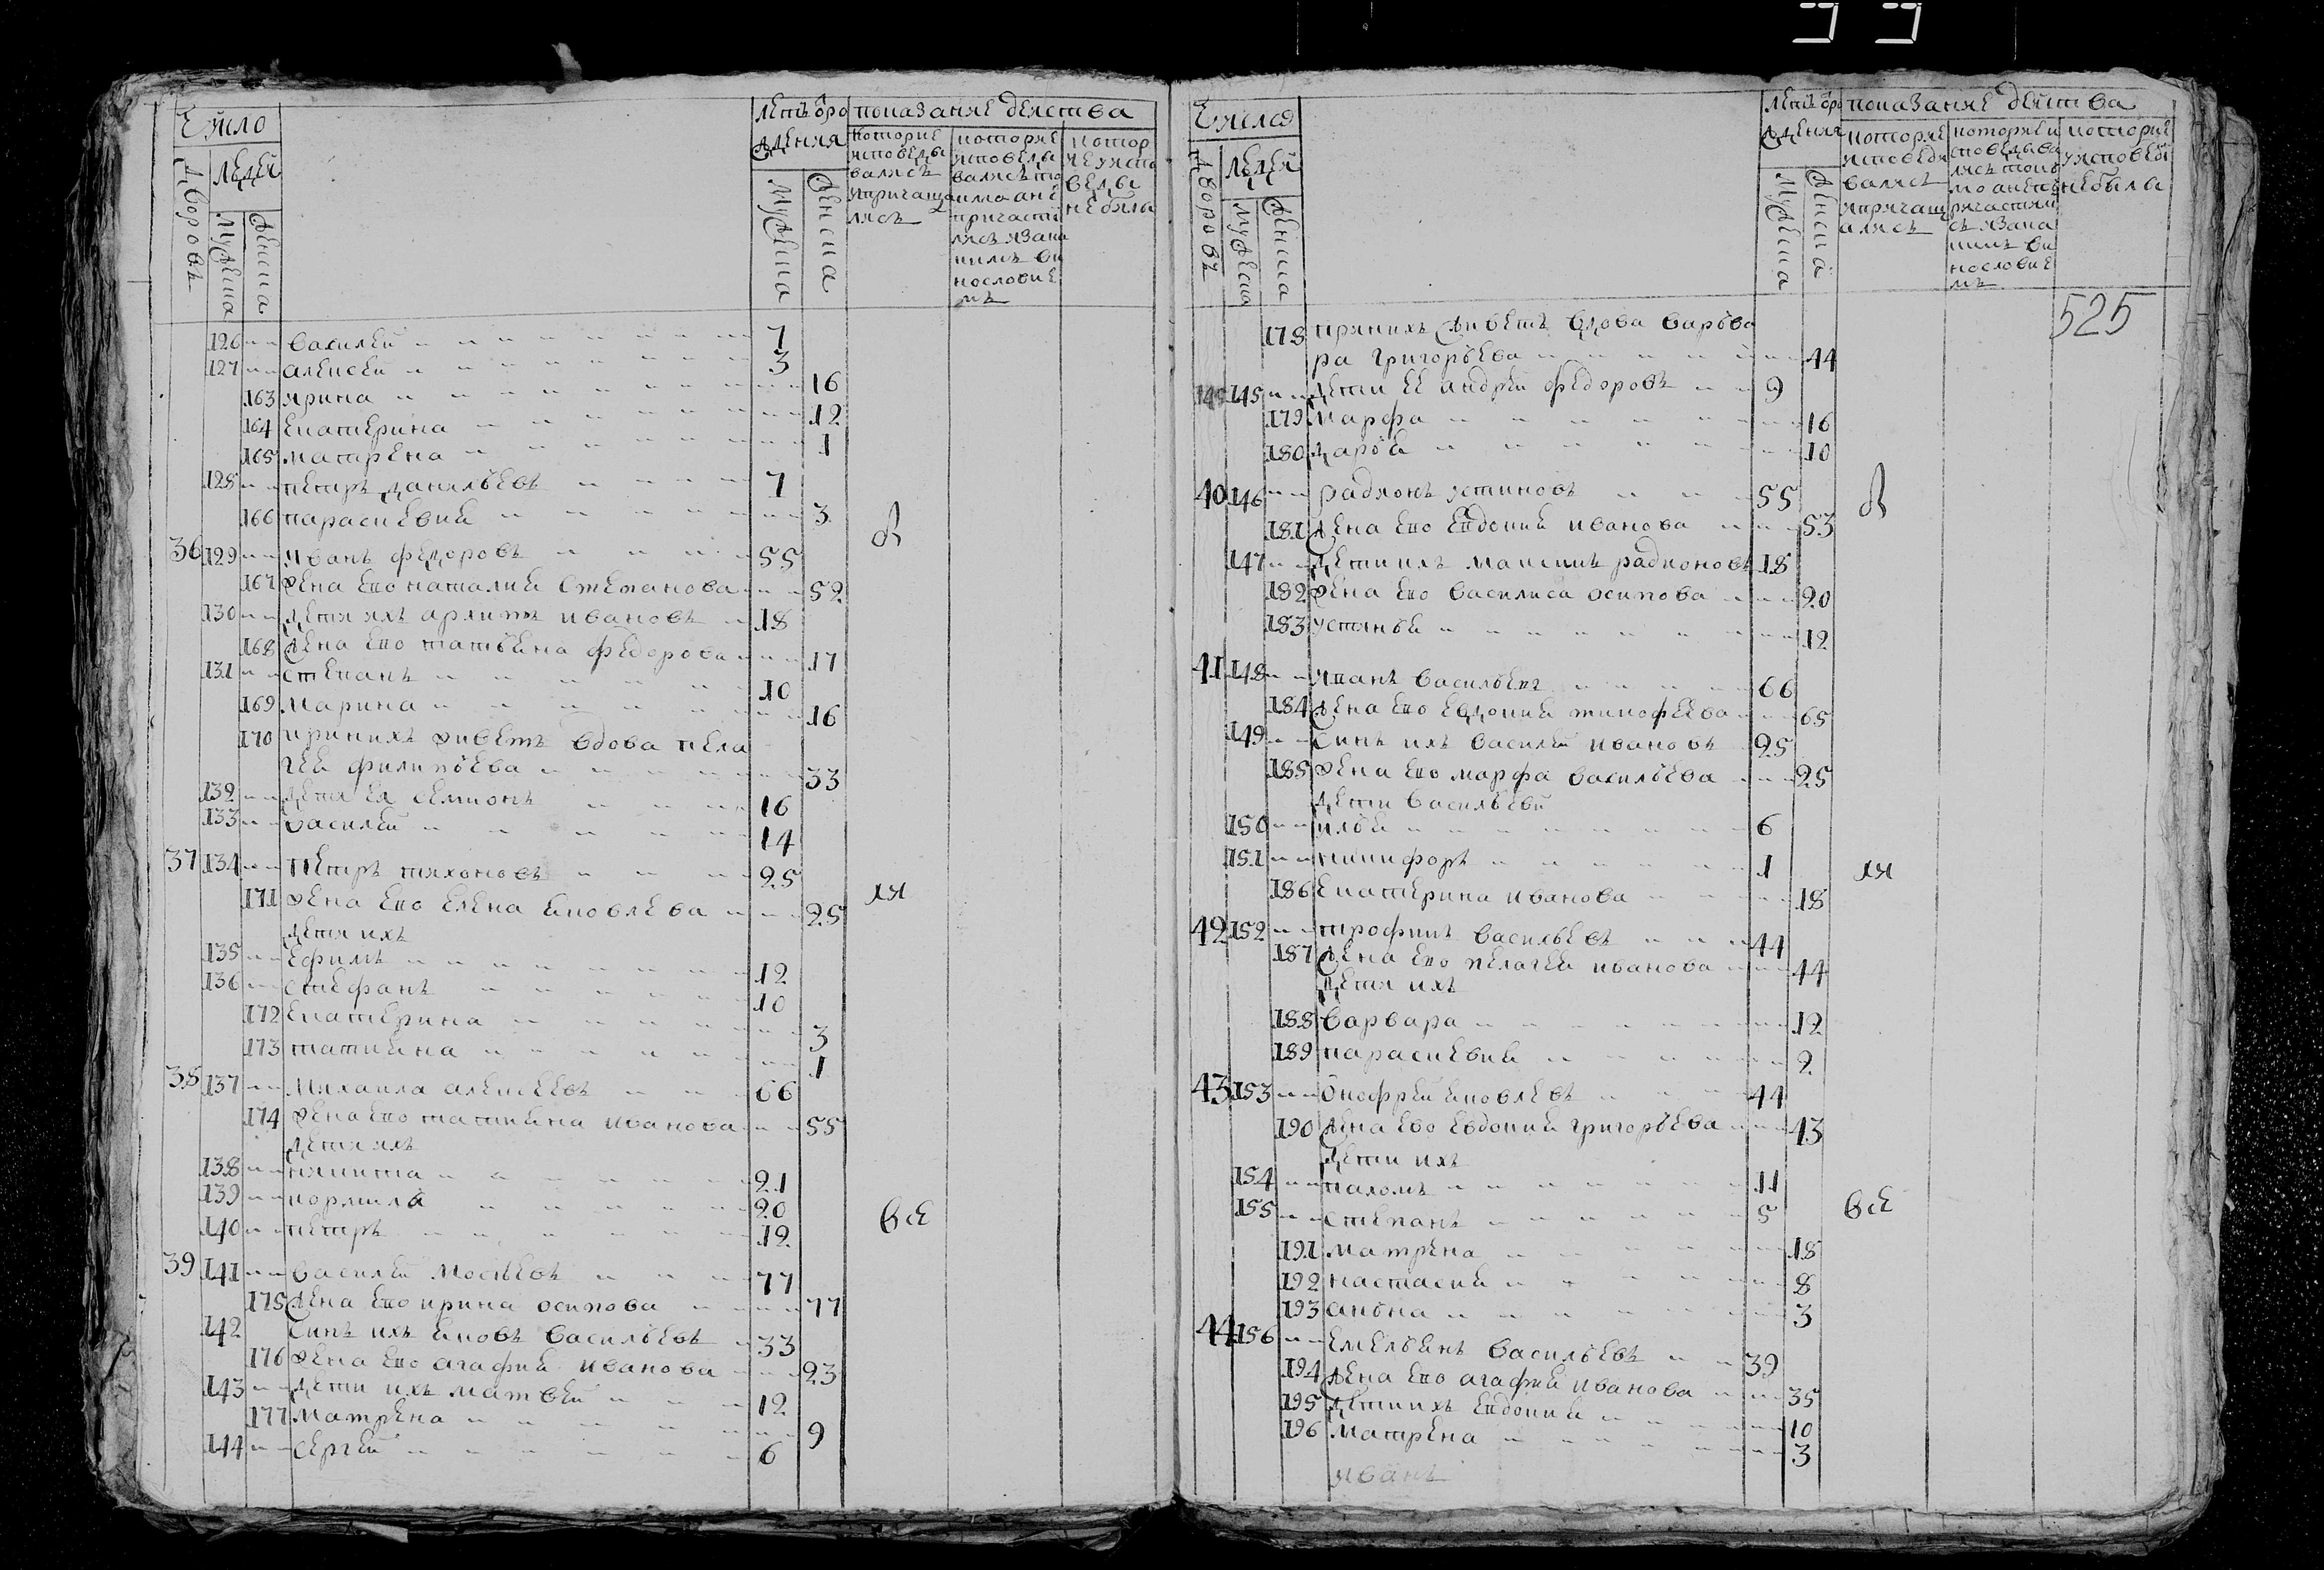 Число
Дворовъ
Людей
Мужеска
Женска
Летъ от ро
ждения
Мужеска
Женска
показание действа
которые
исповеды
вались
и причаща
лись
которые
исповеды
вались то
кмо а не
причасти
лись и за ка
кимъ ви
нословие
мъ
котор
ые у испо
веды
не были
126 -- василей 7
127 -- алексей 3
163 ирина 16
164 екатерина 12
165 матрена 1
128 -- петръ данильевъ 7
166 параскевия 3
36 129 -- иванъ федоровъ 55
167 жена ево наталия степанова 52
130 -- дети ихъ архипъ ивановъ 18
168 жена ево татьяна федорова 17
131 -- степанъ 10
169 марина 16
170 при нихъ живетъ вдова пела
гея филипьева 33
132 -- дети ея семионъ 16
133 -- василей 14
37 134 -- петръ тихоновъ 25
171 жена ево елена яковлева 25
дети ихъ
135 -- ефимъ 12
136 -- стефанъ 10
172 екатерина 3
173 татияна 1
38 137 -- михаила алексеевъ 66
174 жена ево татияна иванова 55
дети ихъ
138 -- никита 21
139 -- корнила 20
140 -- петръ 12
39 141 -- василей мосеевъ 77
175 жена ево ирина осипова 77
142 синъ ихъ яковъ васильевъ 33
176 жена ево агафия иванова 23
143 -- дети ихъ матвей 12
177 матрена 9
144 -- сергей 6
все
Число
Дворовъ
Людей
Мужеска
Женска
летъ от ро
ждения
Мужеска
Женска
показание действа
которые
исповеды
вались
и причащ
ались
которые и
споведыва
лись токъ
мо а не п
ричастили
сь и за ка
кимъ ви
нословие
мъ
которые
у исповеди
не были
525
178 при нихъ живетъ вдова варьва
ра григорьева 44
145 145 -- дети ее андрей федоровъ 9
179 марфа 16
180 дарья 10
40 146 -- радионъ устиновъ 55
181 жена ево евдокия иванова 53
147 -- дети ихъ максимъ радионовъ 18
182 жена ево василиса осипова 20
183 устинья 12
41 148 -- иванъ васильевъ 66
184 жена ево евдокия тимофеева 65
149 -- синъ ихъ василей ивановъ 25
185 жена ево марфа васильева 25
дети васильевы
150 -- илья 6
151 -- никифоръ 1
186 екатерина иванова 18
42 152 -- трофимъ васильевъ 44
187 жена ево пелагея иванова 44
дети ихъ
188 варвара 12
189 параскевия 2
43 153 -- онофрей яковлевъ 44
190 жена ево евдокия григорьева 43
дети ихъ
154 -- пахомъ 11
155 -- степанъ 5
191 матрена 18
192 настасия 8
193 анна 3
44 156 -- емельянъ васильевъ 39
194 жена ево агафия иванова 35
195 дети ихъ евдокия 10
196 матрена 3
иванъ
все